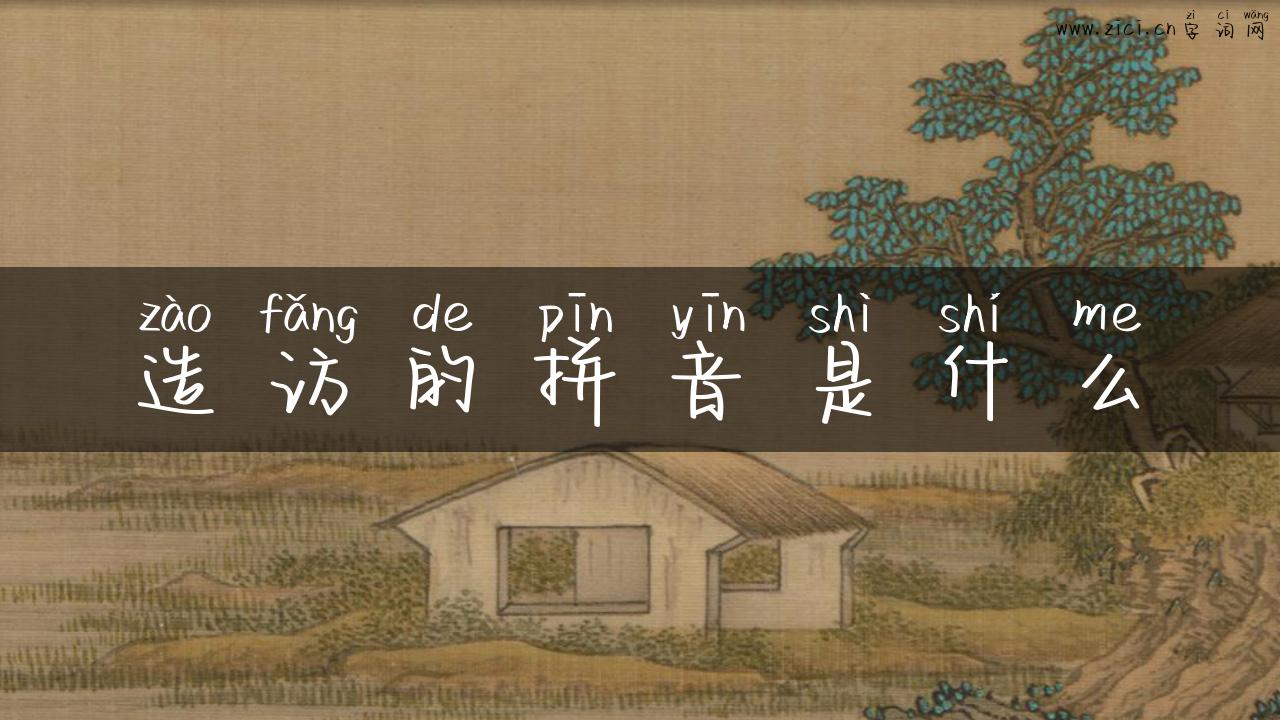 zì cí wǎng
www.zici.cn 字词网
zào fǎng de pīn yīn shì shí me
造访的拼音是什么